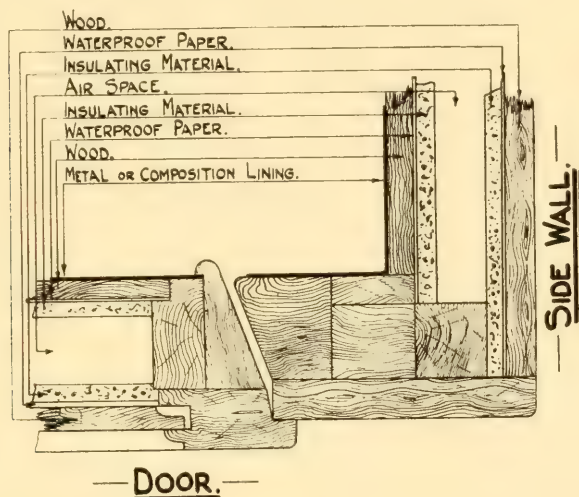 WOOD.
WATERPROOF PAPER.
INSULATING MATERIAL.
AIR SPACE.
INSULATING MATERIAL.
WATERPROOF PAPER.
WOOD.
METAL OR COMPOSITION LINING.
—SIDE WALL.—
—DOOR.—